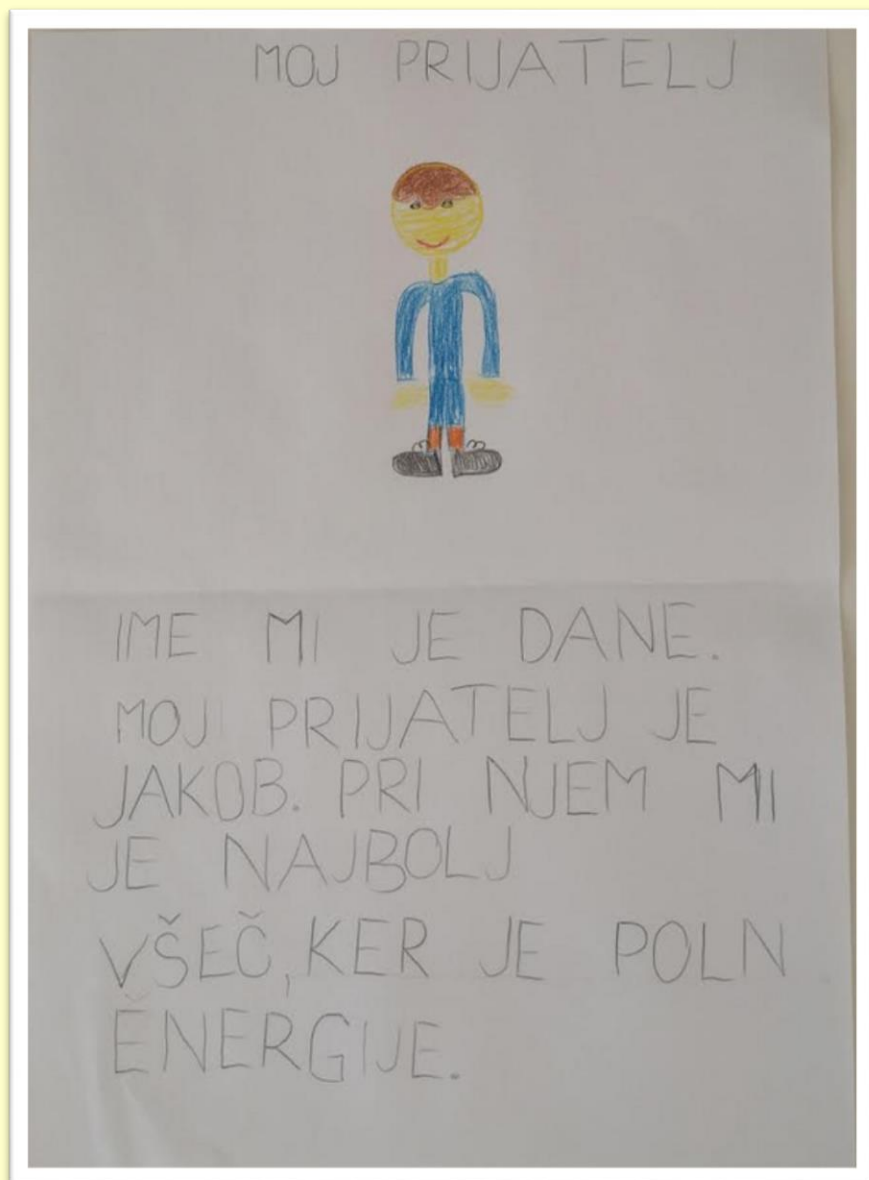 MOJ PRIJATELJ
IME MI JE DANE.
MOJ PRIJATELJ JE
JAKOB. PRI NJEM MI
JE NAJBOLJ
VŠEČ, KER JE POLN
ENERGIJE.